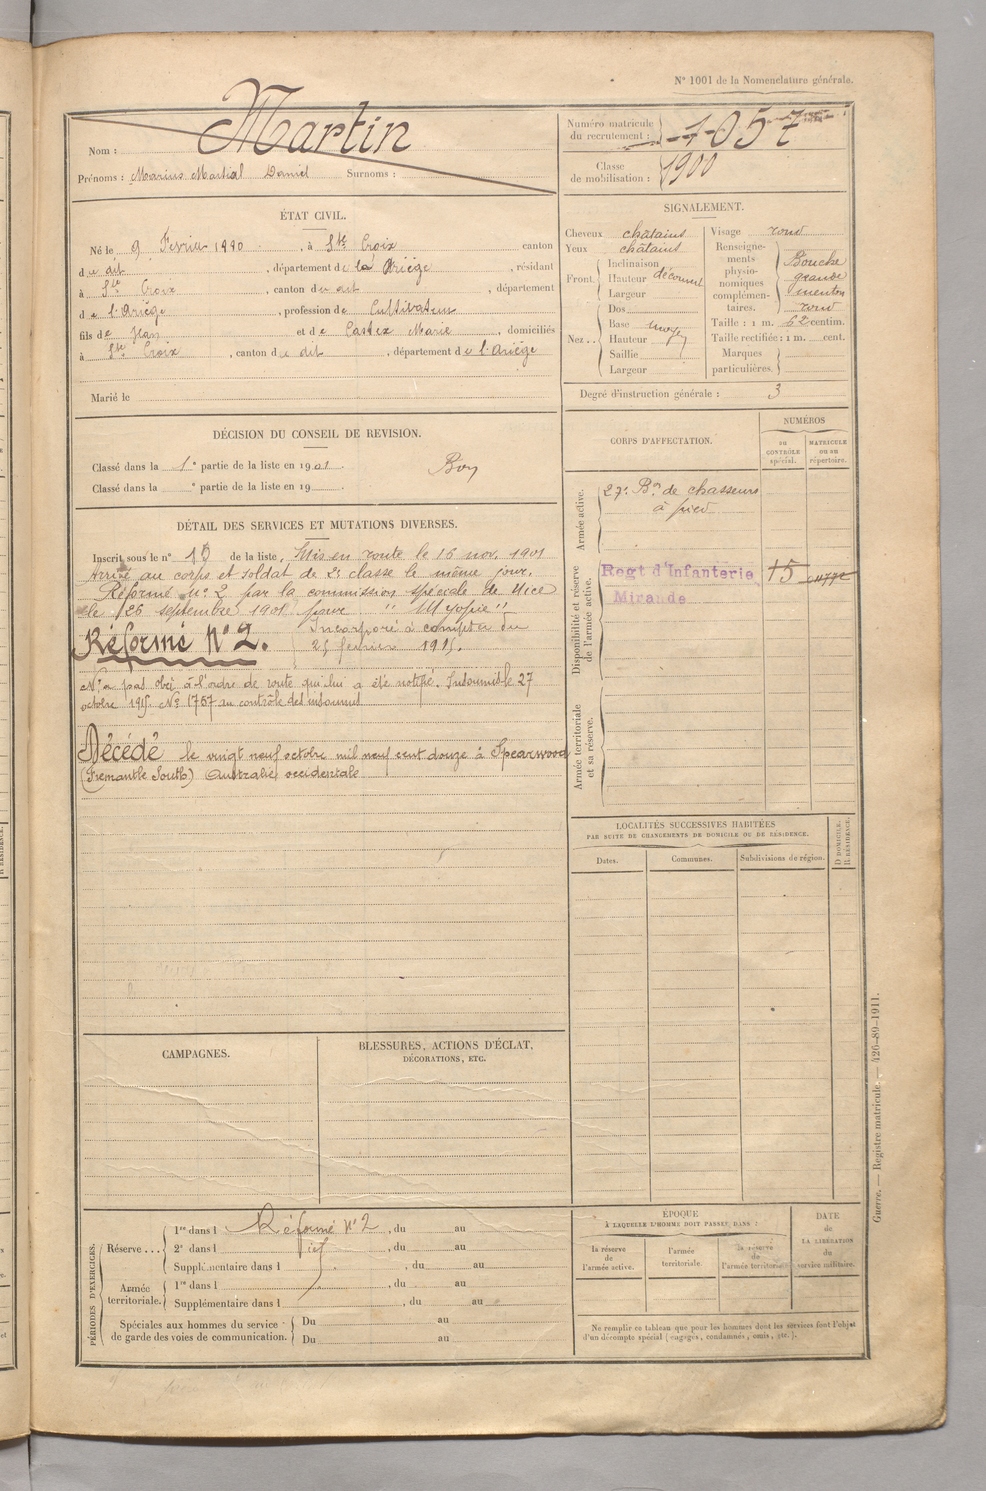 N° 1001 de la Nomenclature générale.
Nom : Martin
Prénoms : Marius Martial Daniel Surnoms :
Numéro matricule du recrutement : 1057
Classe de mobilisation : 1900
ÉTAT CIVIL.
Né le 9 Février 1880, à Ste Croix canton
de dit, département de la Ariège, résidant
à Ste Croix, canton du dit, département
de l'Ariège, profession de Cultivateur
fils de Jean et de Castex Marie, domiciliés
à Ste Croix, canton du dit, département de l'Ariège
Marié le
SIGNALEMENT.
Cheveux châtains
Yeux châtains
Front. Inclinaison
Hauteur découvert
Largeur
Nez.. Dos
Base moy
Hauteur
Saillie
Largeur
Visage rond
Renseignements physionomiques complémentaires. Bouche grande menton rond
Taille : 1 m. 62 centim.
Taille rectifiée : 1 m. cent.
Marques particulières.
Degré d'instruction générale : 3
DÉCISION DU CONSEIL DE REVISION.
Classé dans la 1e partie de la liste en 1901. Bon
Classé dans la e partie de la liste en 19
DÉTAIL DES SERVICES ET MUTATIONS DIVERSES.
Inscrit sous le n° 10 de la liste. Mis en route le 16 nov. 1901
Arrivé au corps et soldat de 2e classe le même jour.
Réformé N° 2 par la commission spéciale de Nice
le 26 septembre 1901 pour " Myopie "
Réformé N° 2. Incorporé à compter du
25 février 1915.
N'a pas obéi à l'ordre de route qui lui a été notifié. Insoumis le 27
octobre 1915. N° 1757 au contrôle des insoumis
Décédé le vingt neuf octobre mil neuf cent douze à Spearwood
(Fremantle South) Australie occidentale
CORPS D'AFFECTATION.
NUMÉROS
DU CONTRÔLE spécial.
MATRICULE OU AU répertoire.
Armée active.
27e Bon de chasseurs
à pied
Disponibilité et réserve de l'armée active.
Regt d'Infanterie 15
Mirande
Armée territoriale et sa réserve.
LOCALITÉS SUCCESSIVES HABITÉES
PAR SUITE DE CHANGEMENTS DE DOMICILE OU DE RÉSIDENCE.
Dates. Communes. Subdivisions de région. D. DOMICILE. R. RÉSIDENCE.
CAMPAGNES.
BLESSURES, ACTIONS D'ÉCLAT,
DÉCORATIONS, ETC.
PÉRIODES D'EXERCICES.
Réserve....
1re dans l Réformé N° 2, du au
2e dans l, du au
Supplémentaire dans l, du au
Armée territoriale.
1re dans l, du au
Supplémentaire dans l, du au
Spéciales aux hommes du service de garde des voies de communication.
Du au
Du au
ÉPOQUE
À LAQUELLE L'HOMME DOIT PASSER DANS :
la réserve de l'armée active.
l'armée territoriale.
la réserve de l'armée territoriale.
DATE de LA LIBÉRATION du service militaire.
Ne remplir ce tableau que pour les hommes dont les services font l'objet
d'un décompte spécial (engagés, condamnés, omis, etc.).
Guerre. — Registre matricule. — 426-89-1911.